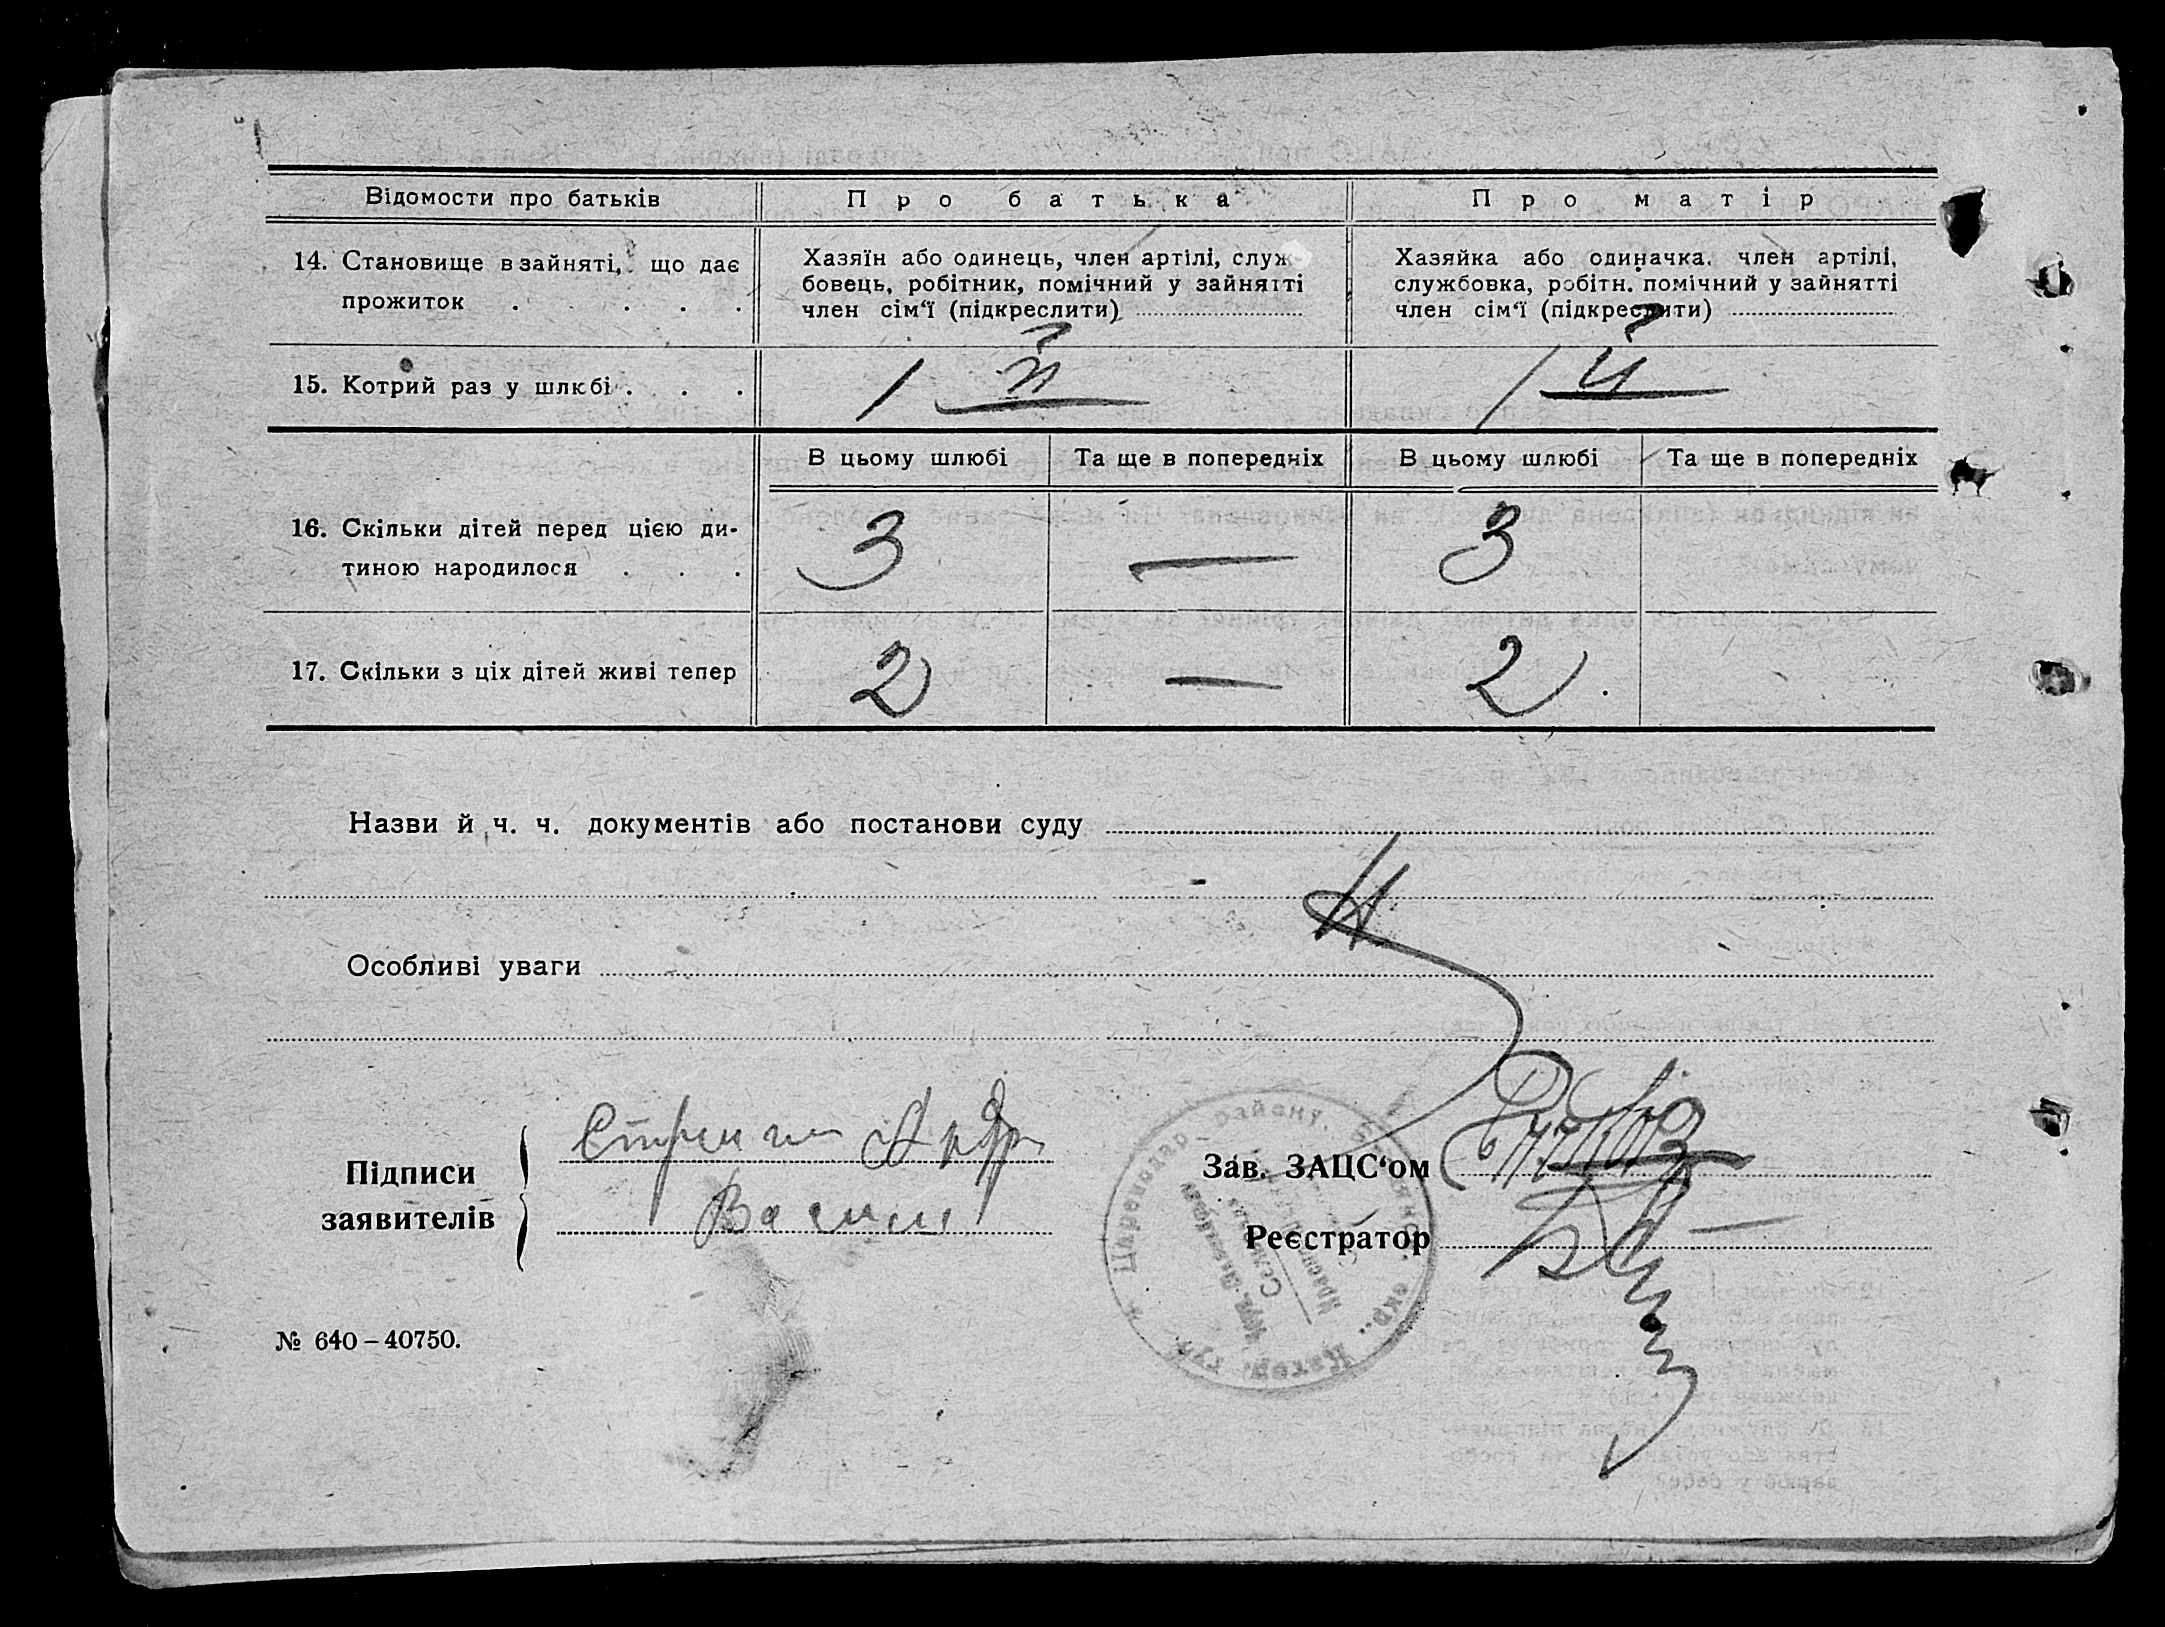 Відомости про батьків
Про батька
Про матір
14. Становище в зайняті, що дає
прожиток . . . .
Хазяїн або одинець, член артілі, служ-
бовець, робітник, помічний у зайнятті
член сім‘ї (підкреслити)
Хазяйка або одиначка, член артілі,
службовка, робітн. помічний у зайнятті
член сім‘ї (підкреслити)
15. Котрий раз у шлюбі . . .
1 й
1 й
В цьому шлюбі
Та ще в попередніх
В цьому шлюбі
Та ще в попередніх
16. Скільки дітей перед цією ди-
тиною народилося . . .
3
—
3
17. Скільки з ціх дітей живі тепер
2
—
2
Назви й ч. ч. документів або постанови суду
Особливі уваги
Підписи
заявителів
Зав. ЗАЦС‘ом
Реєстратор
Цареводар. району,
окр.,
Катер. губ.
№ 640–40750.